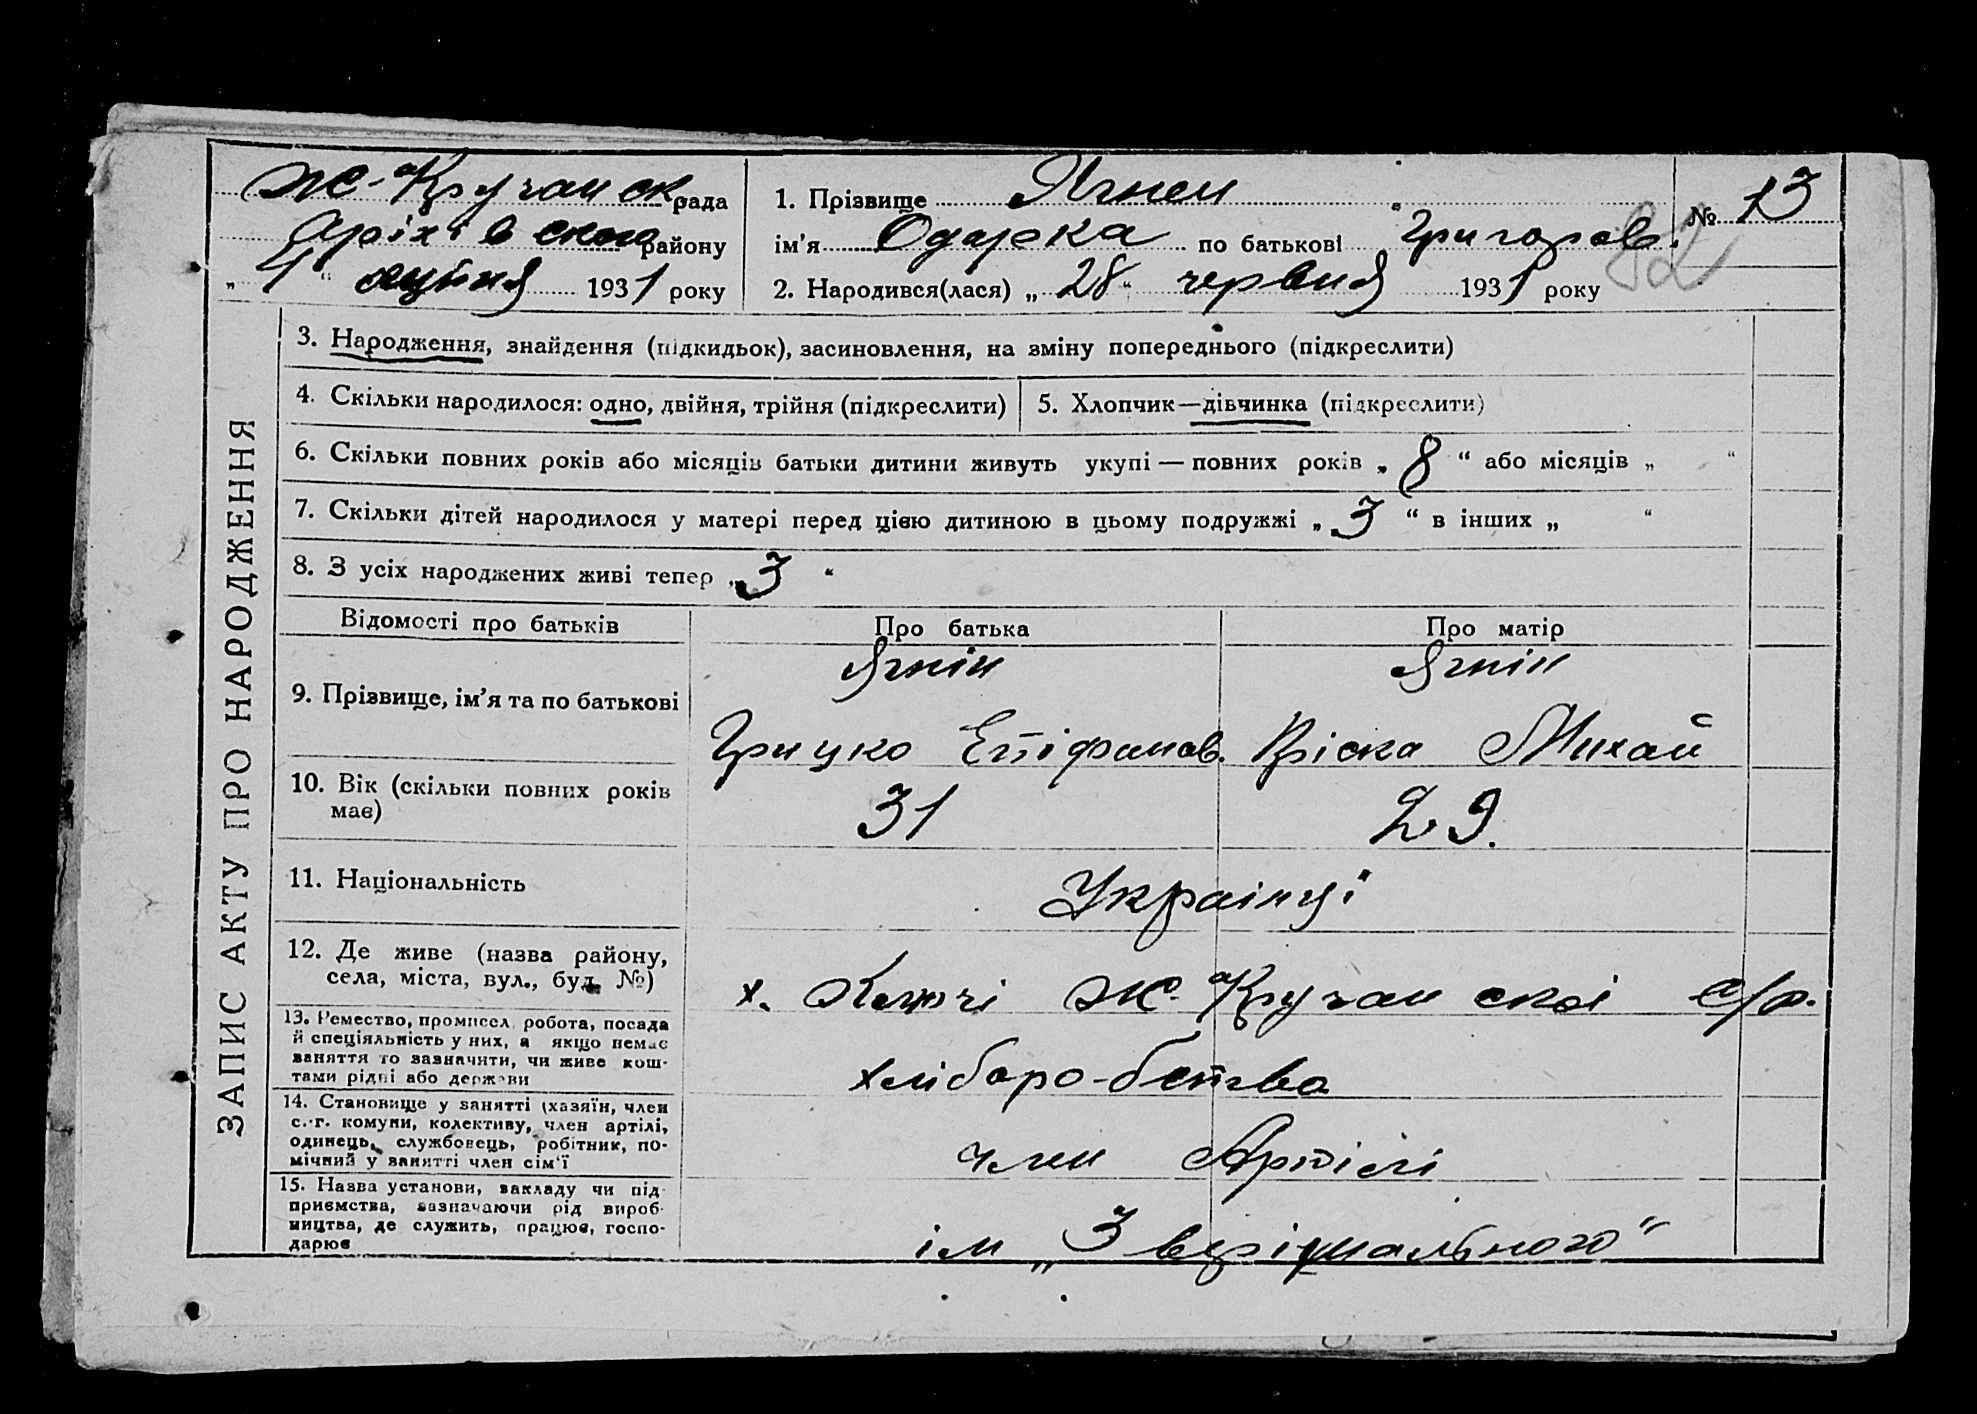 Ж-Кручанск рада
Оріхівського району
„ 1 “ липня 1931 року
1. Прізвище Ягнен
ім’я Одарка по батькові Григоров.
2. Народився(лася) „ 28 “ червня 1931 року
№ 13
82
ЗАПИС АКТУ ПРО НАРОДЖЕННЯ
3. Народження, знайдення (підкидьок), засиновлення, на зміну попереднього (підкреслити)
4. Скільки народилося: одно, двійня, трійня (підкреслити)
5. Хлопчик—дівчинка (підкреслити)
6. Скільки повних років або місяців батьки дитини живуть укупі — повних років „ 8 “ або місяців „ “
7. Скільки дітей народилося у матері перед цією дитиною в цьому подружжі „ 3 “ в інших „ “
8. З усіх народжених живі тепер „ 3 “
Відомості про батьків Про батька Про матір
9. Прізвище, ім’я та по батькові
Ягнін Ягнін
Грицко Епіфанов. Пріска Михай
10. Вік (скільки повних років
має)
31 29.
11. Національність
Українці
12. Де живе (назва району,
села, міста, вул., буд. №)
х. Ключі Ж-Кручанскоі с/р.
13. Ремество, промисел, робота, посада
й спеціяльність у них, а якщо немає
заняття то зазначити, чи живе кош-
тами рідні або держави
хліборо-бство
14. Становище у занятті (хазяїн, член
с.-г. комуни, колективу, член артілі,
одинець, службовець, робітник, по-
мічний у занятті член сім’ї
член Артілі
15. Назва установи, закладу чи під-
приємства, зазначаючи рід вироб-
ництва, де служить, працює, госпо-
дарює
ім „З вріжального“